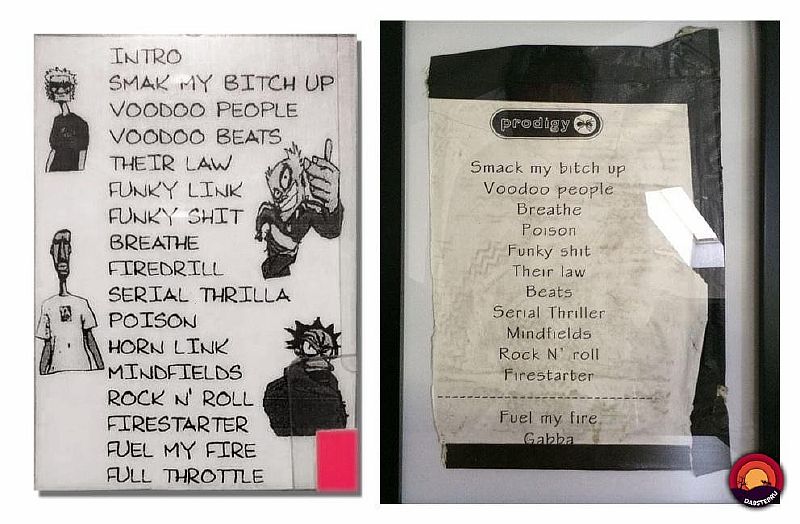 INTRO
SMAK MY BITCH UP
VOODOO PEOPLE
VOODOO BEATS
THEIR LAW
FUNKY LINK
FUNKY SHIT
BREATHE
FIREDRILL
SERIAL THRILLA
POISON
HORN LINK
MINDFIELDS
ROCK N' ROLL
FIRESTARTER
FUEL MY FIRE
FULL THROTTLE
prodigy
Smack my bitch up
Voodoo people
Breathe
Poison
Funky shit
Their law
Beats
Serial Thriller
Mindfields
Rock N' roll
Firestarter
Fuel my fire
Gabba
DABSTEP.RU